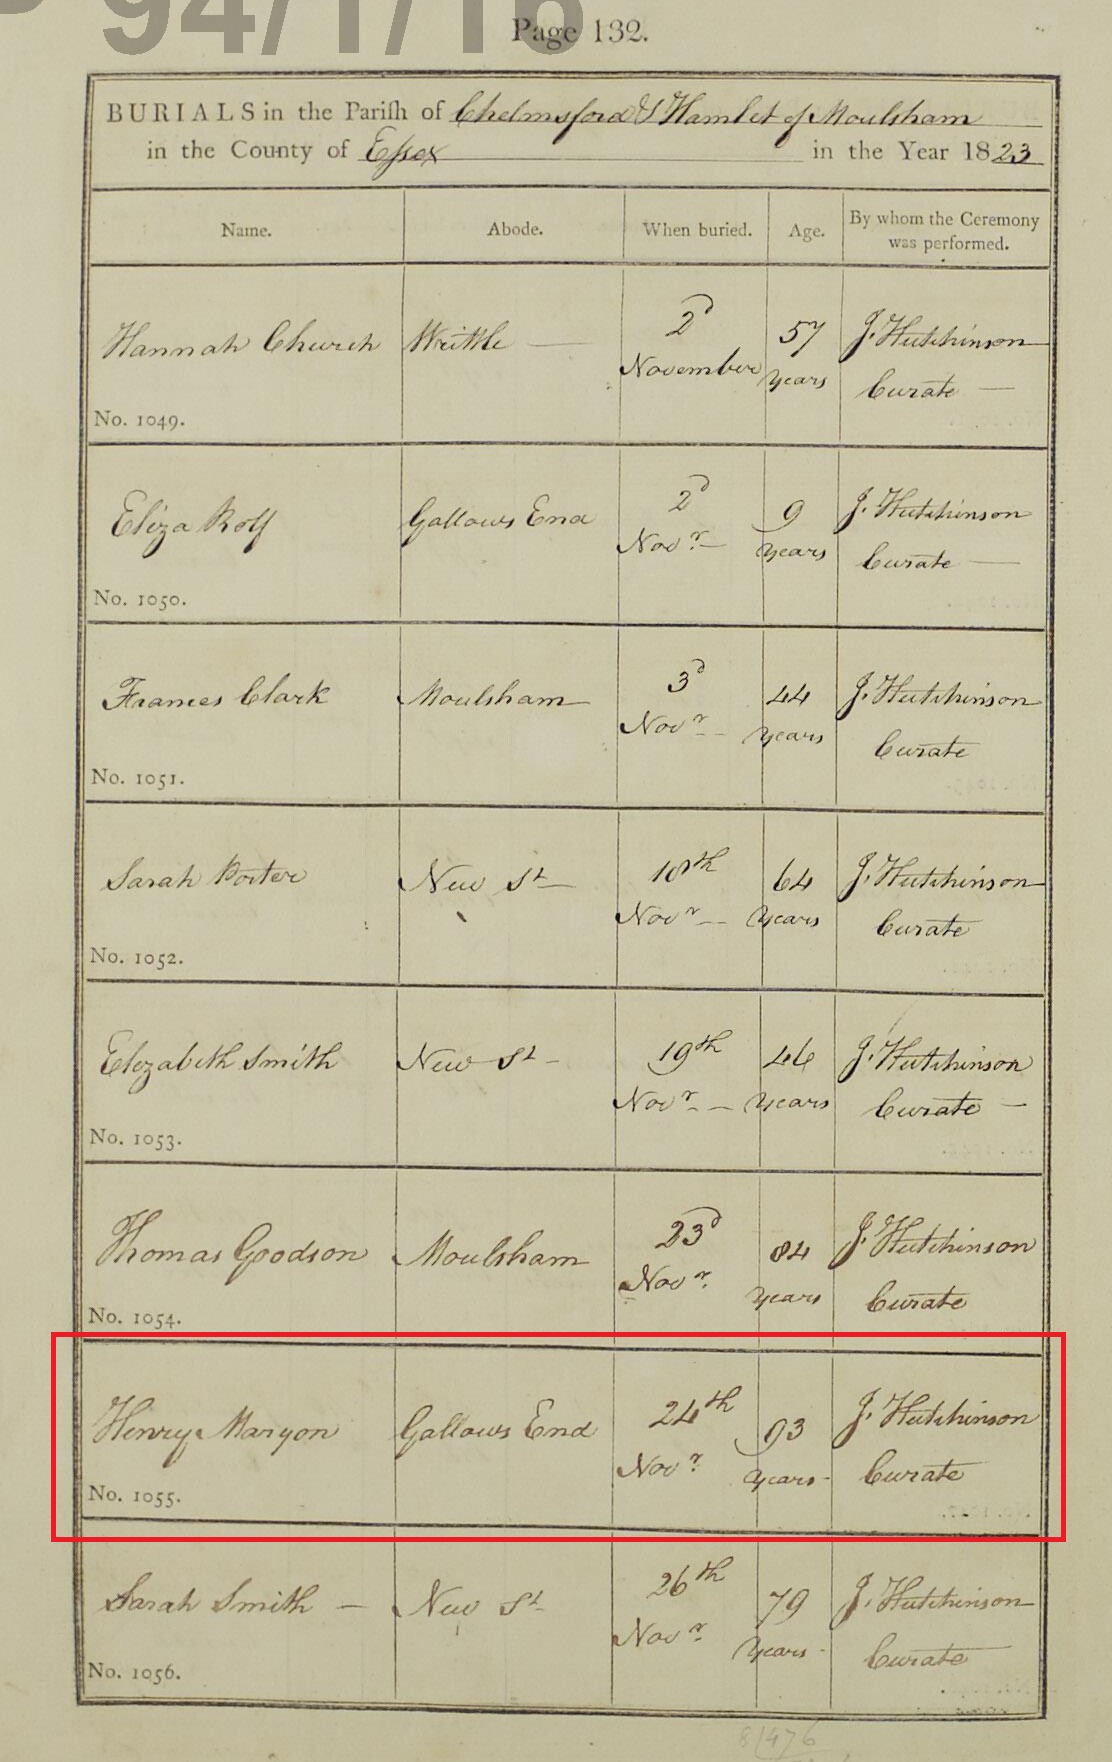 P 94/1/16
Page 132.
BURIALS in the Pariſh of Chelmsford & Hamlet of Moulsham
in the County of Eſsex in the Year 1823
Name. Abode. When buried. Age. By whom the Ceremony was performed.
Hannah Church Writtle — 2d 57 J. Hutchinson
November years Curate —
No. 1049.
Eliza Rolf Gallows End 2d 9 J. Hutchinson
Novr. years Curate —
No. 1050.
Frances Clark Moulsham 3d 44 J. Hutchinson
Novr years Curate
No. 1051.
Sarah Porter New St 18th 64 J. Hutchinson
Novr years Curate
No. 1052.
Elizabeth Smith New St 19th 46 J. Hutchinson
Novr years Curate —
No. 1053.
Thomas Goodson Moulsham 23d 84 J. Hutchinson
Novr. years Curate
No. 1054.
Henry Maryon Gallows End 24th 93 J. Hutchinson
Novr. years Curate
No. 1055.
Sarah Smith — New St 26th 79 J. Hutchinson
Novr. years Curate
No. 1056.